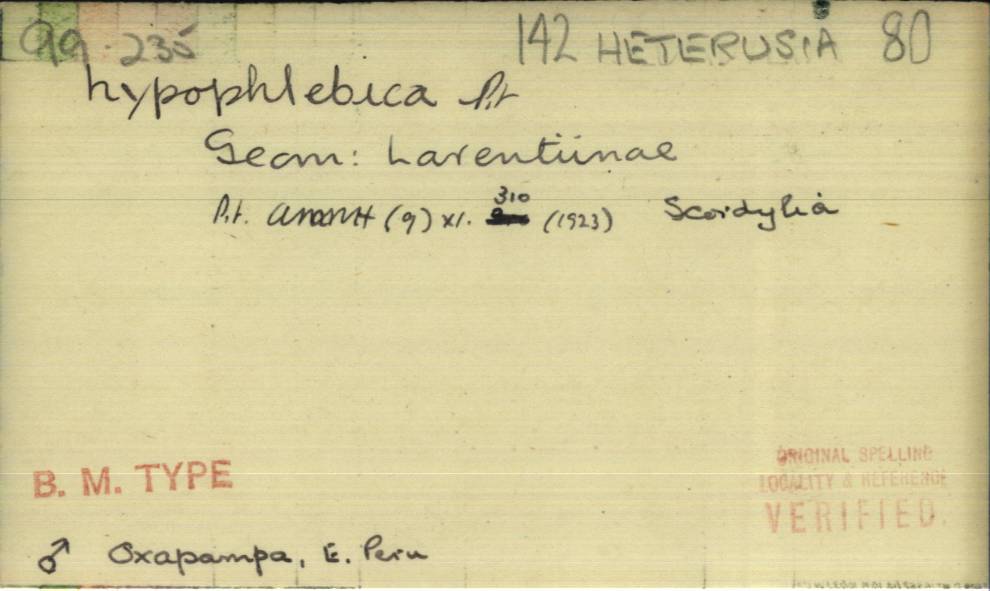 99. 235 142 HETERUSIA 80
hypophlebica Pt
Geom: Larentiinae
Pt. AMNH (9) XI. 310 (1923) Scordylia
B. M. TYPE
ORIGINAL SPELLING
LOCALITY & REFERENCE
VERIFIED.
♂ Oxapampa, E. Peru